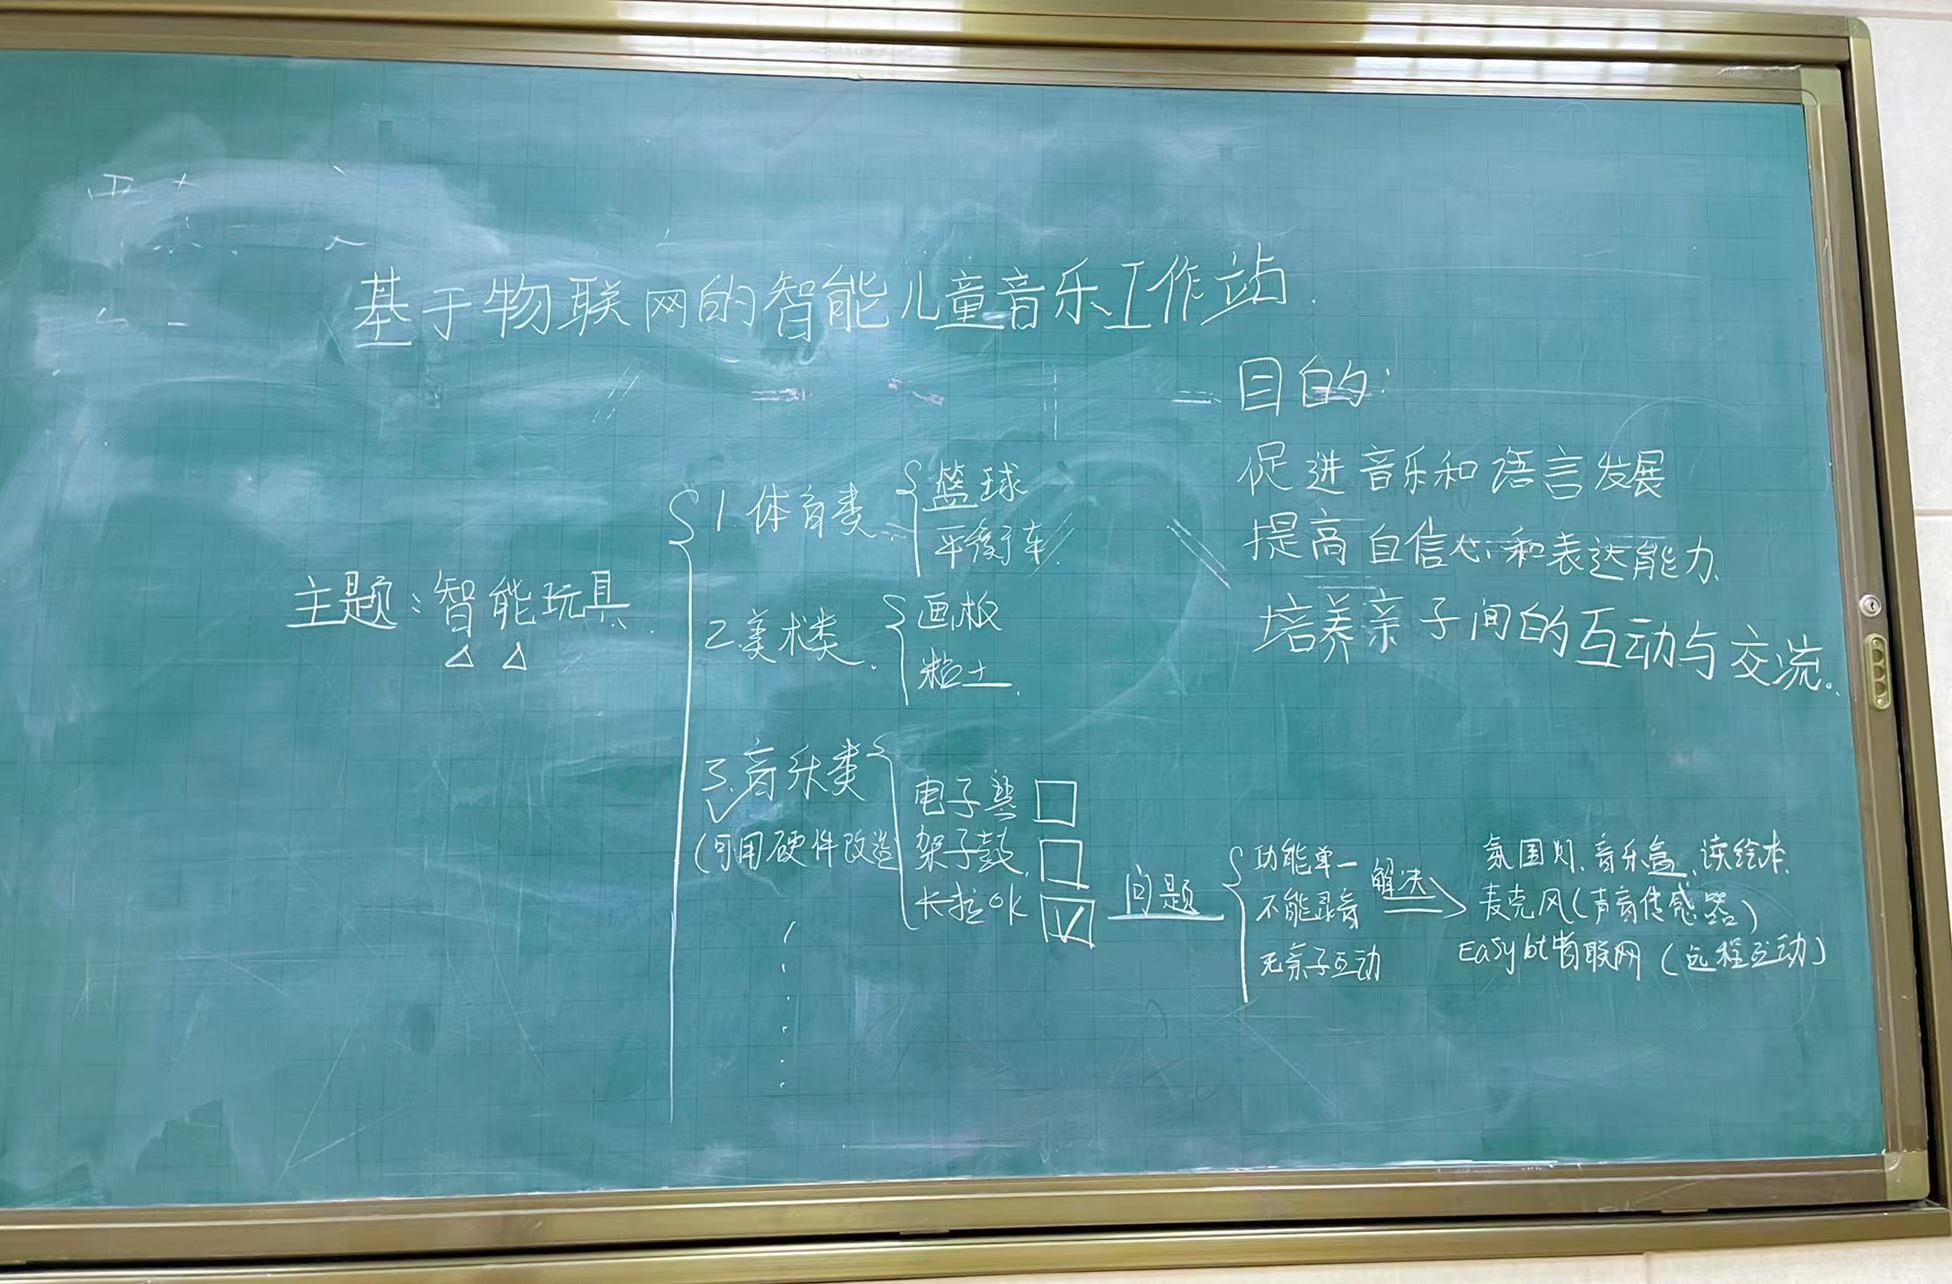 基于物联网的智能儿童音乐工作站.
目的:
促进音乐和语言发展
提高自信心和表达能力、
培养亲子间的互动与交流。
主题:智能玩具.
1.体育类
篮球
平衡车.
2.美术类.
画板
粘土.
3.音乐类
(可用硬件改造
电子琴
架子鼓.
卡拉OK
问题
功能单一
不能录音
无亲子互动
解决
氛围灯、音乐盒、读绘本.
麦克风(声音传感器)
Easy Iot物联网(远程互动)